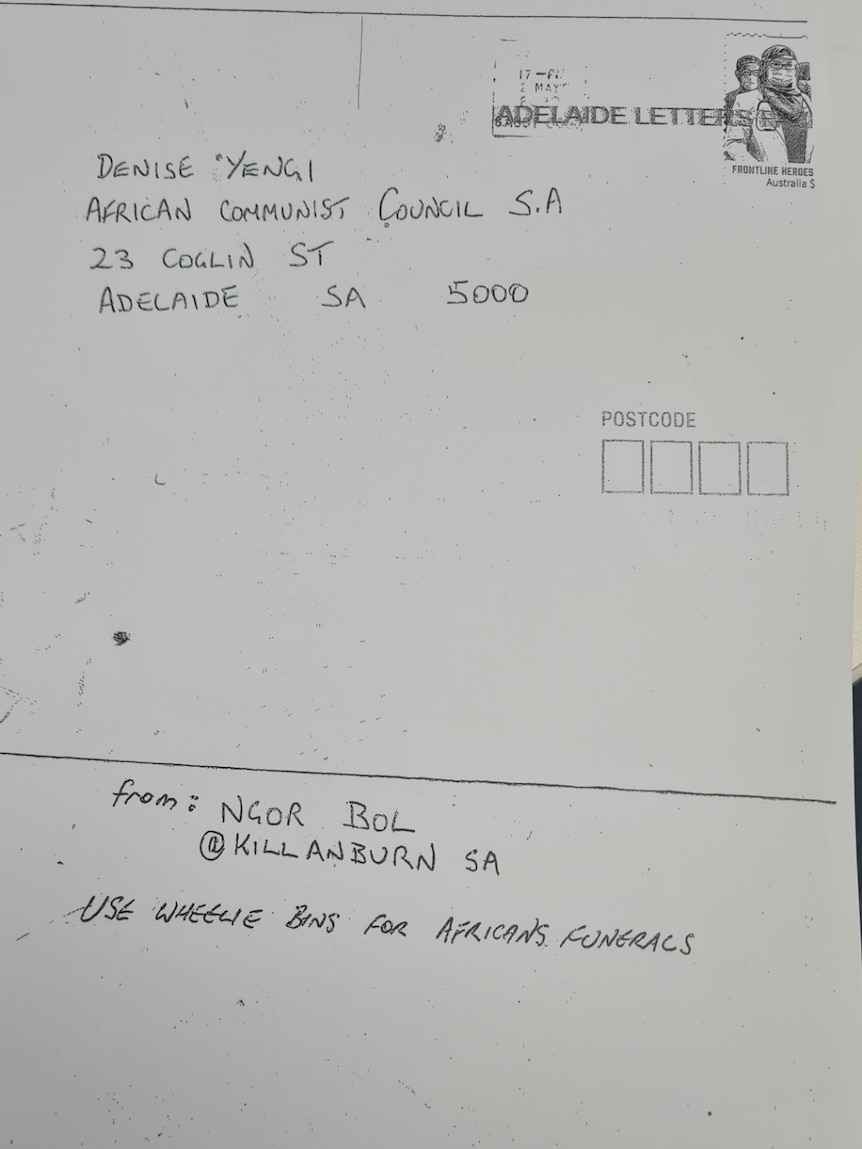 17-PM
2 MAY
ADELAIDE LETTERS
FRONTLINE HEROES
Australia $
DENISE YENGI
AFRICAN COMMUNIST COUNCIL S.A
23 COGLIN ST
ADELAIDE SA 5000
POSTCODE
from: NGOR BOL
@KILLANBURN SA
USE WHEELIE BINS FOR AFRICANS FUNERALS